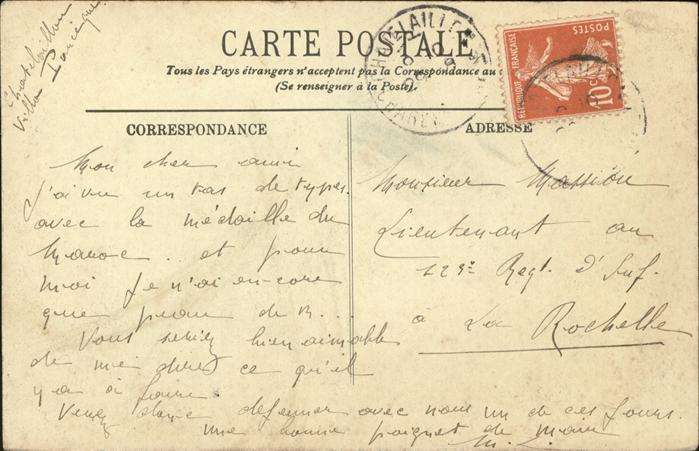 Chatelaillon
Villa
CARTE POSTALE
Tous les Pays étrangers n'acceptent pas la Correspondance au
(Se renseigner à la Poste).
CORRESPONDANCE
ADRESSE
REPUBLIQUE FRANÇAISE
POSTES
10c
CHATELAILLON
Mon cher ami
J'ai vu un tas de types
avec la médaille du
Maroc.. et pour
moi je n'ai encore
que peau de B...
Vous seriez bien aimable
de me dire ce qu'il
y a à faire.
Venez donc déjeuner avec nous un de ces jours.
une bonne poignée de main
M. L.
Monsieur Massiou
Lieutenant au
123e Regt. d'Inf.
à La Rochelle